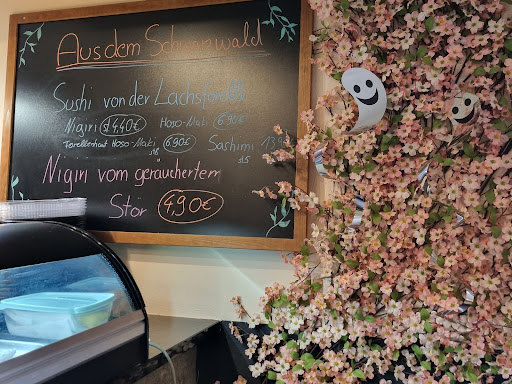 Aus dem Schwarzwald
Sushi von der Lachsforelle
Nigiri st 4,40€ Hoso-Maki 6,90€
Forellenhaut Hoso-Maki 6,90€ Sashimi
Nigiri vom geräuchertem
Stör 4,90€